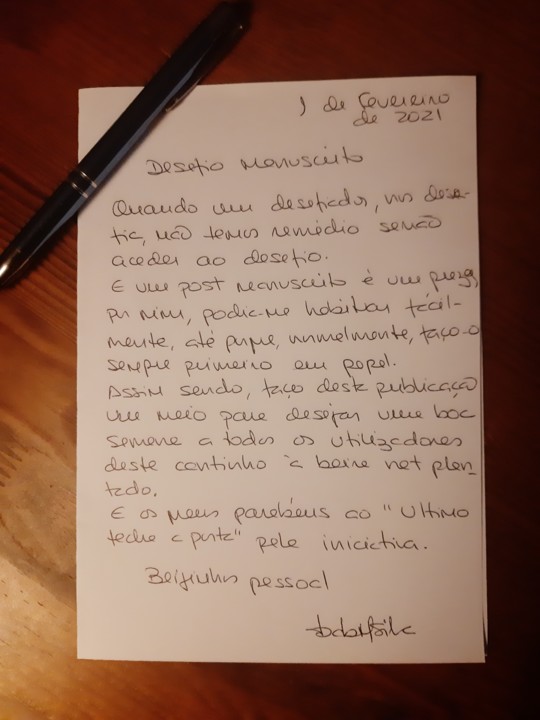 1 de Fevereiro
de 2021
Desafio Manuscrito
Quando um desafiador, nos desa-
fia, não temos remédio senão
aceder ao desafio.
E um post manuscrito é um prazer
pra mim, podia-me habituar fácil-
mente, até porque, normalmente, faço-o
sempre primeiro em papel.
Assim sendo, faço desta publicação
um meio para desejar uma boa
semana a todos os utilizadores
deste cantinho à beira net plan-
tado.
E os meus parabéns ao "Ultimo
fecha a porta" pela iniciativa.
Beijinhos pessoal